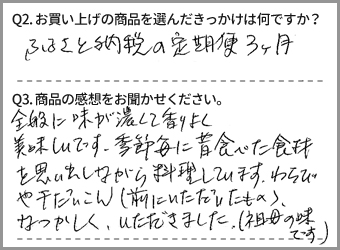 Q2.お買い上げの商品を選んだきっかけは何ですか？
ふるさと納税の定期便3ヶ月
Q3.商品の感想をお聞かせください。
全般に味が濃くて香りよく
美味しいです。季節毎に昔食べた食球
を思い出しながら料理しています。わらび
や干だいこん(前にいただいたもの)、
なつかしく、いただきました。(祖母の味
です。)